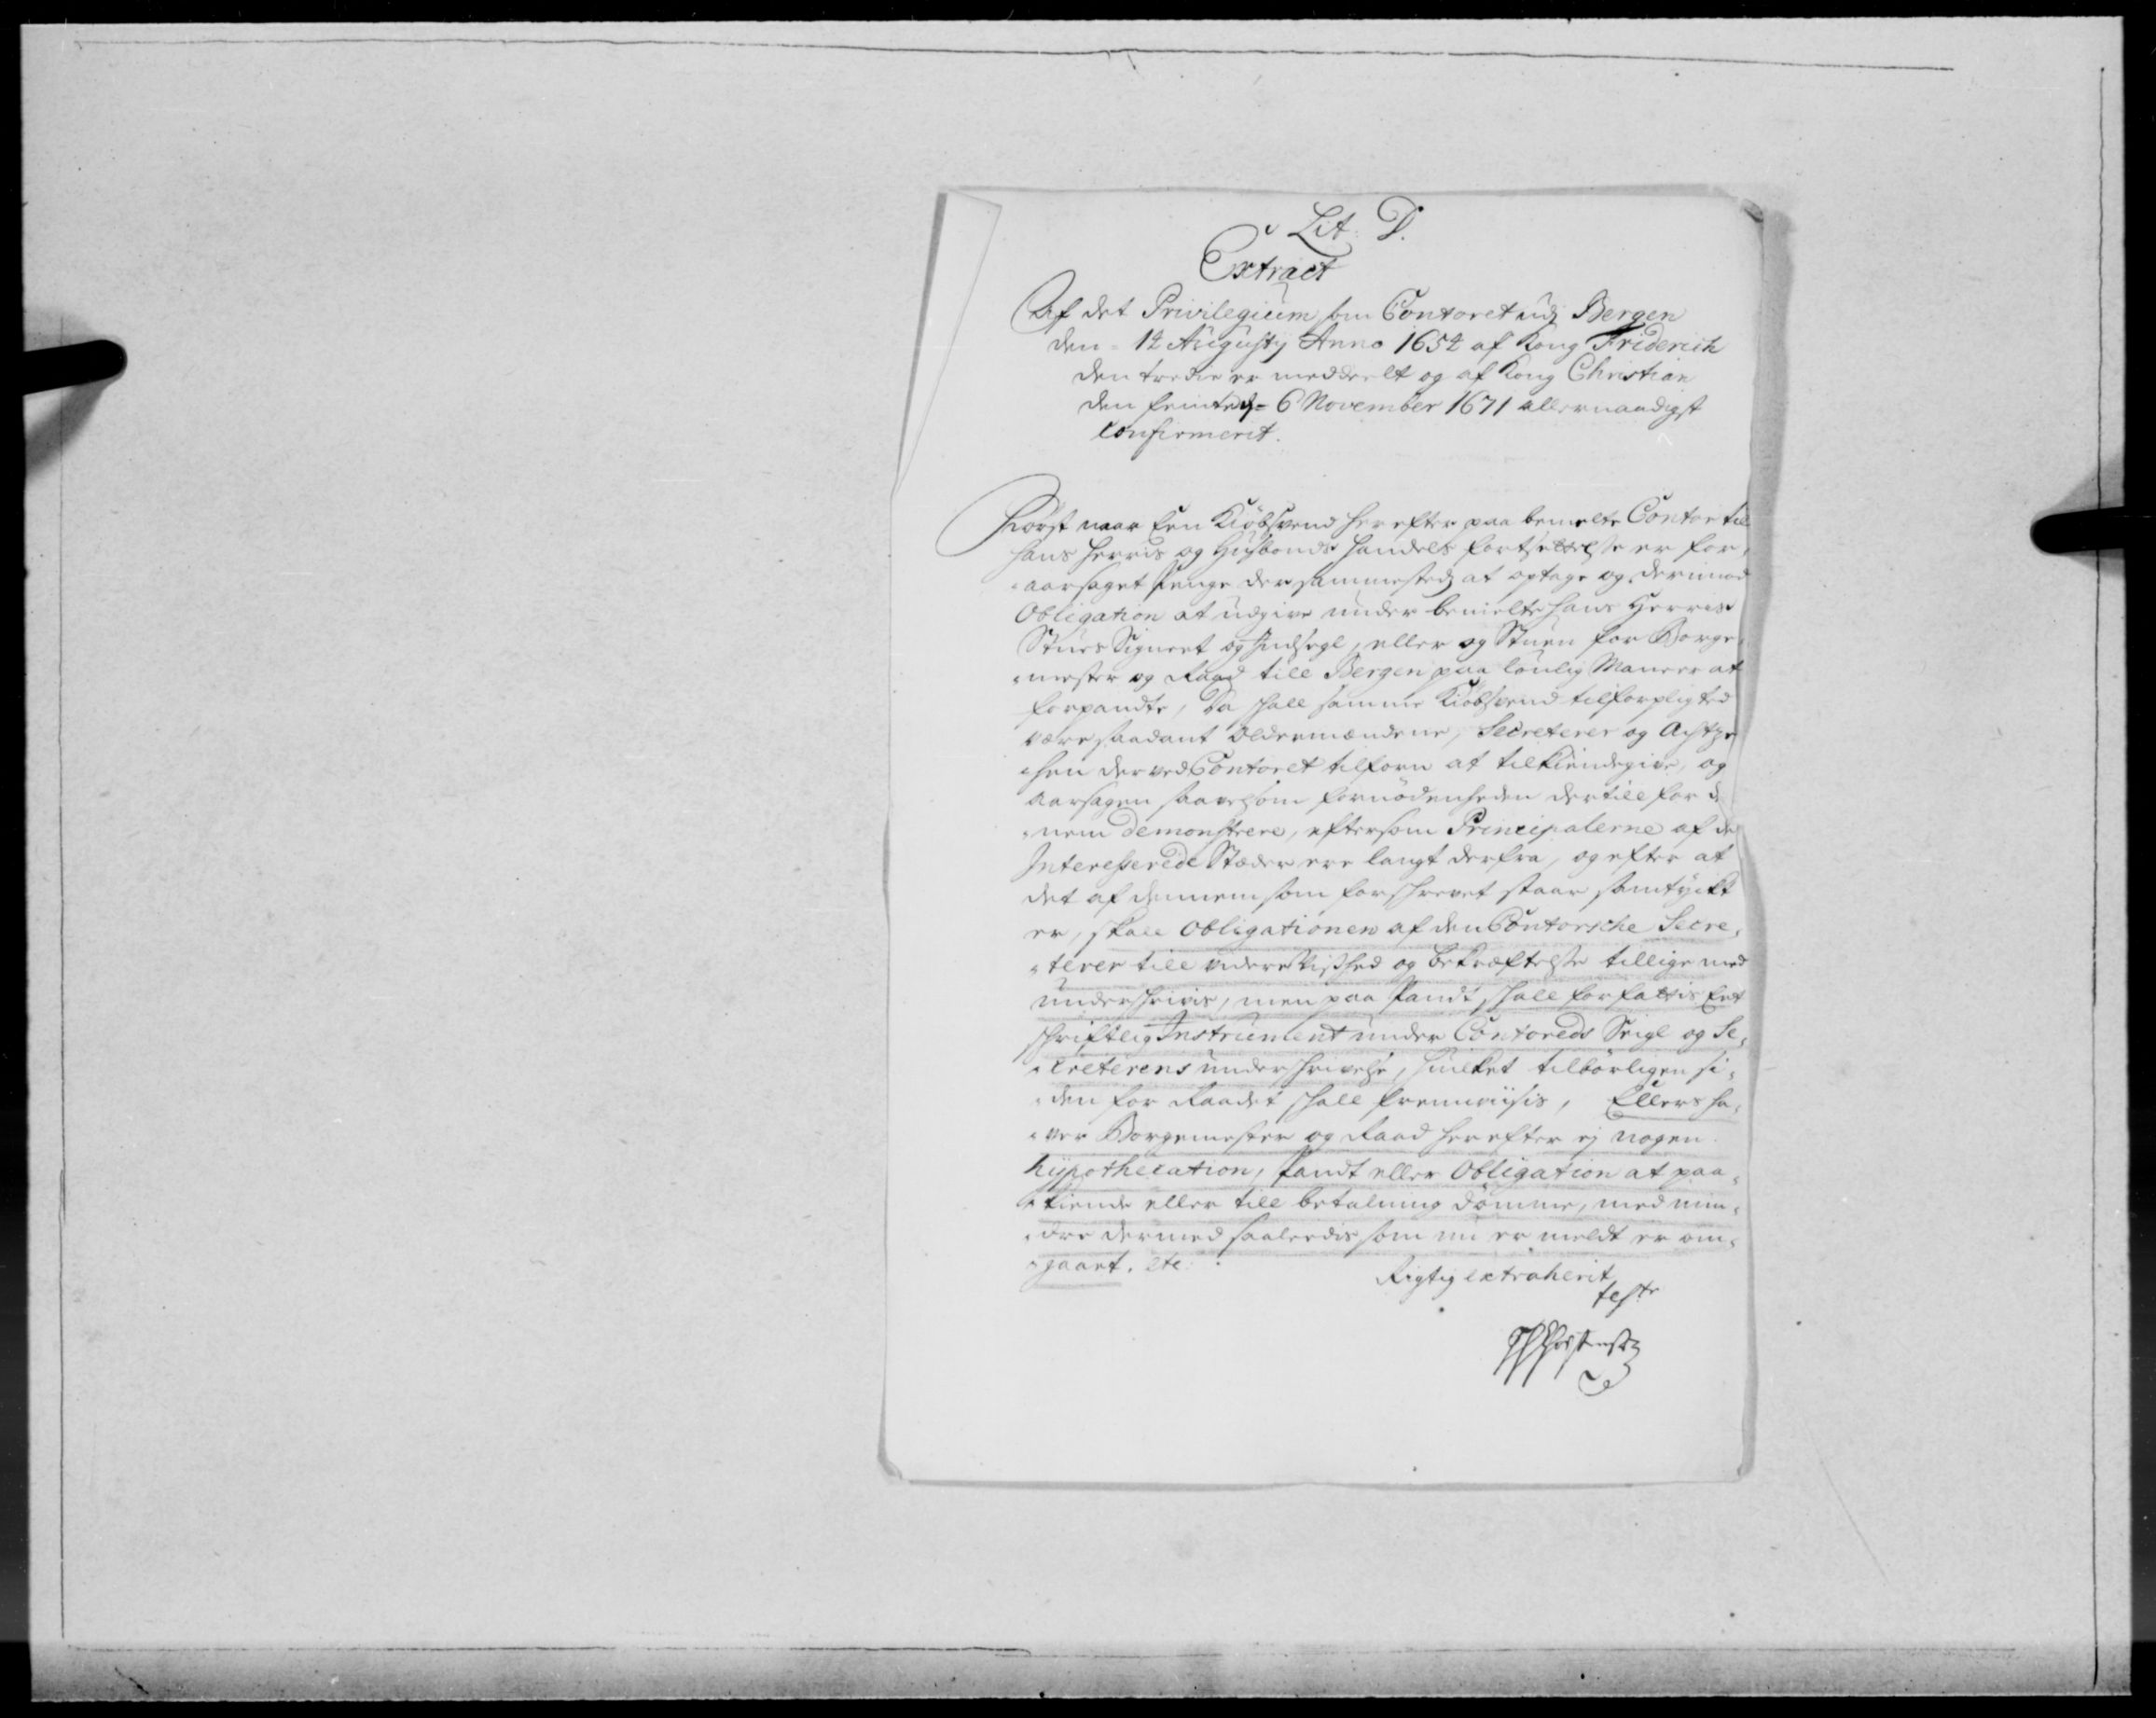 Lit: D.
Extract
Af det Privilegium som Contoret udj Bergen
den 14 Augustj Anno 1654 af Kong Friderich
den tredie er meddeelt og af Kong Christian
den femte d. 6 November 1671 allernaadigst
Confirmerit.
Først naar Een Kiøbsvend her efter paa bemelte Contor til
hans Herris og Husbonds Handels fortsettelse er for,
aarsaget Penge der sammesteds at optage og derimod
Obligation at udgive under bemelte hans Herris
Stues Signet og Indsegl, eller og Stuen for Borge,
mester og Raad till Bergen paa louglig Maneer at
forpandte, Da skall samme Kiøbsvend tilforpligted
være saadant Oldermændene, Secreterer og Achtze
hen der ved Contoret tilforn at tilkiendegive, og
Aarsagen saavelsom fornødenheden dertill for de
nem demonstrere, eftersom Principalerne af de
Interesserede Stæder ere langt derfra, og efter at
det af dennem som forskrevet staar samtyckt
er, skall Obligationen af den Contorsche Secre,
terer till videre Vished og bekræftelse tillige med
underskrivis, men paa Pandt skall forfattis Eet
skriftlig Instrument under Contoreds Seigl og Se,
creterens underskrivelse, huilket tilbørligen si,
den for Raadet skall fremviisis, Ellers ha,
ver Borgemester og Raad her efter ej nogen
hypothecation, Pandt eller Obligation at paa,
kiende eller till betalning dømme, med min,
dre dermed saaledis som nu er meldt er om,
gaaet. etc:
Rigtig extraherit
teste